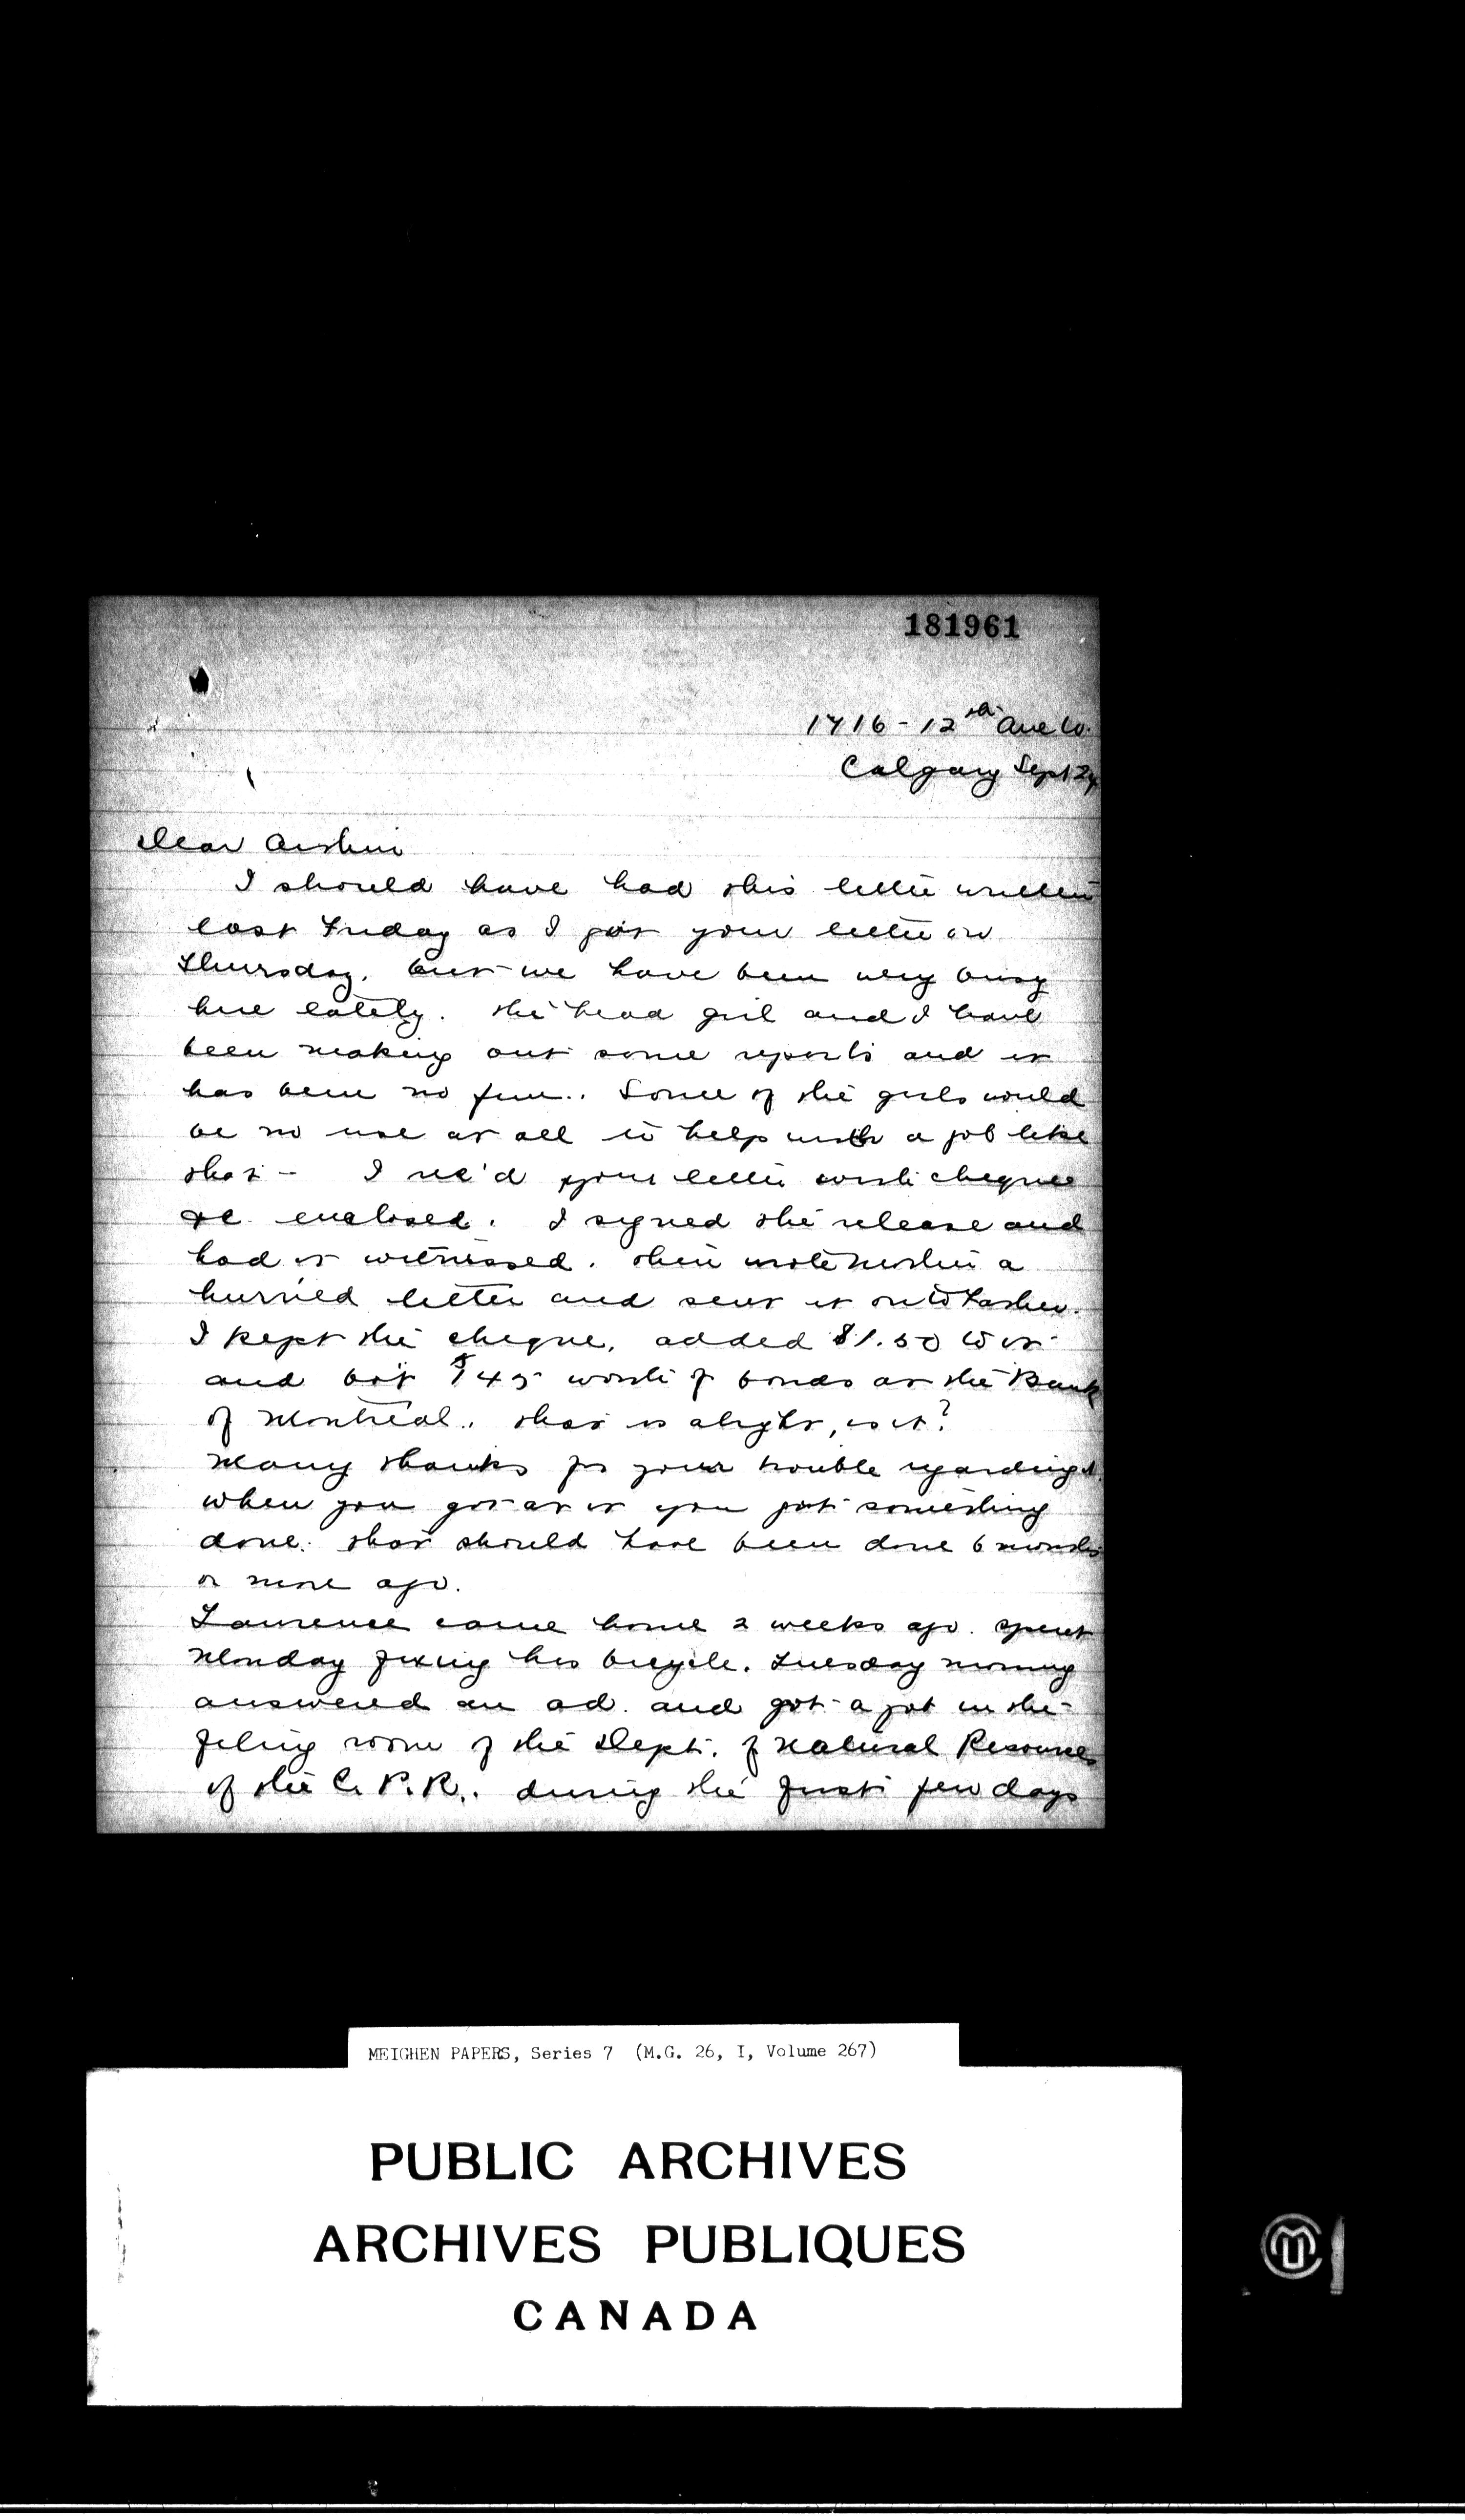 181961
1716-12th Ave W.
Calgary Sept 24
Dear Arthur
I should have had this letter written
last Friday as I got your letter on
Thursday, but we have been very busy
here lately. The head girl and I have
been making out some reports and it
has been no fun. Some of the girls would
be no use at all to help with a job like
that - I rec'd your letter with cheque
&c. enclosed. I signed the release and
had it witnessed. Then wrote Mother a
hurried letter and sent it on to Father.
I kept the cheque, added $1.50 to it
and bot $145 worth of bonds at the Bank
of Montreal. That is alright, is it?
Many thanks for your trouble regarding it.
When you got at it you got something
done. That should have been done 6 months
or more ago.
Laurence came home 2 weeks ago. Spent
Monday fixing his bicycle. Tuesday morning
answered an ad. and got a job in the
filing room of the Dept. of Natural Resources
of the C.P.R.. During the first few days
MEIGHEN PAPERS, Series 7 (M.G. 26, I, Volume 267)
PUBLIC ARCHIVES
ARCHIVES PUBLIQUES
CANADA